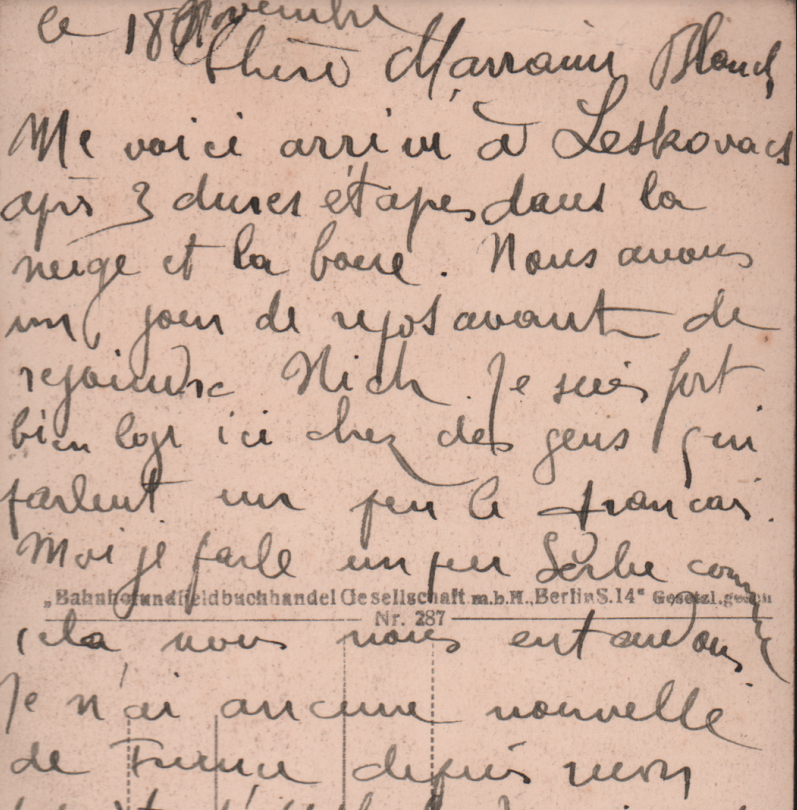 le 18 Novembre
Chère Marraine Blanch
Me voici arrivé à Leskovacs
après 3 dures étapes dans la
neige et la boue. Nous avons
un jour de repos avant de
rejoindre Nich. Je suis fort
bien logé ici chez des gens qui
parlent un peu le francais.
Moi je parle un peu Serbe comme
„Bahnhofundfieldbuchhandel Gesellschaft m.b.H., Berlin S.14" Gesetzl.gesch
Nr. 287
cela nous nous entendons
Je n'ai aucune nouvelle
de France depuis mon